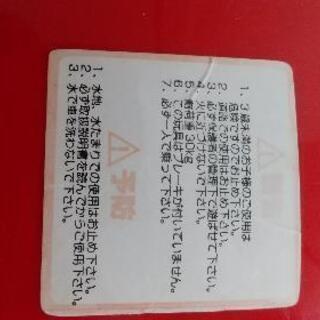 警告
1、3歳未満のお子様のご使用は
危険ですのでお止め下さい。
2、道路での使用はお止め下さい。
3、必ず保護者の管理下で遊ばせて下さい。
4、火に近づけないで下さい。
5、耐荷重30kg
6、この玩具はブレーキが付いていません。
7、必ず一人で乗って下さい。
予防
1、水地、水たまりでの使用はお止め下さい。
2、必ず取扱説明書を読んでからご使用下さい。
3、水で車を洗わないで下さい。